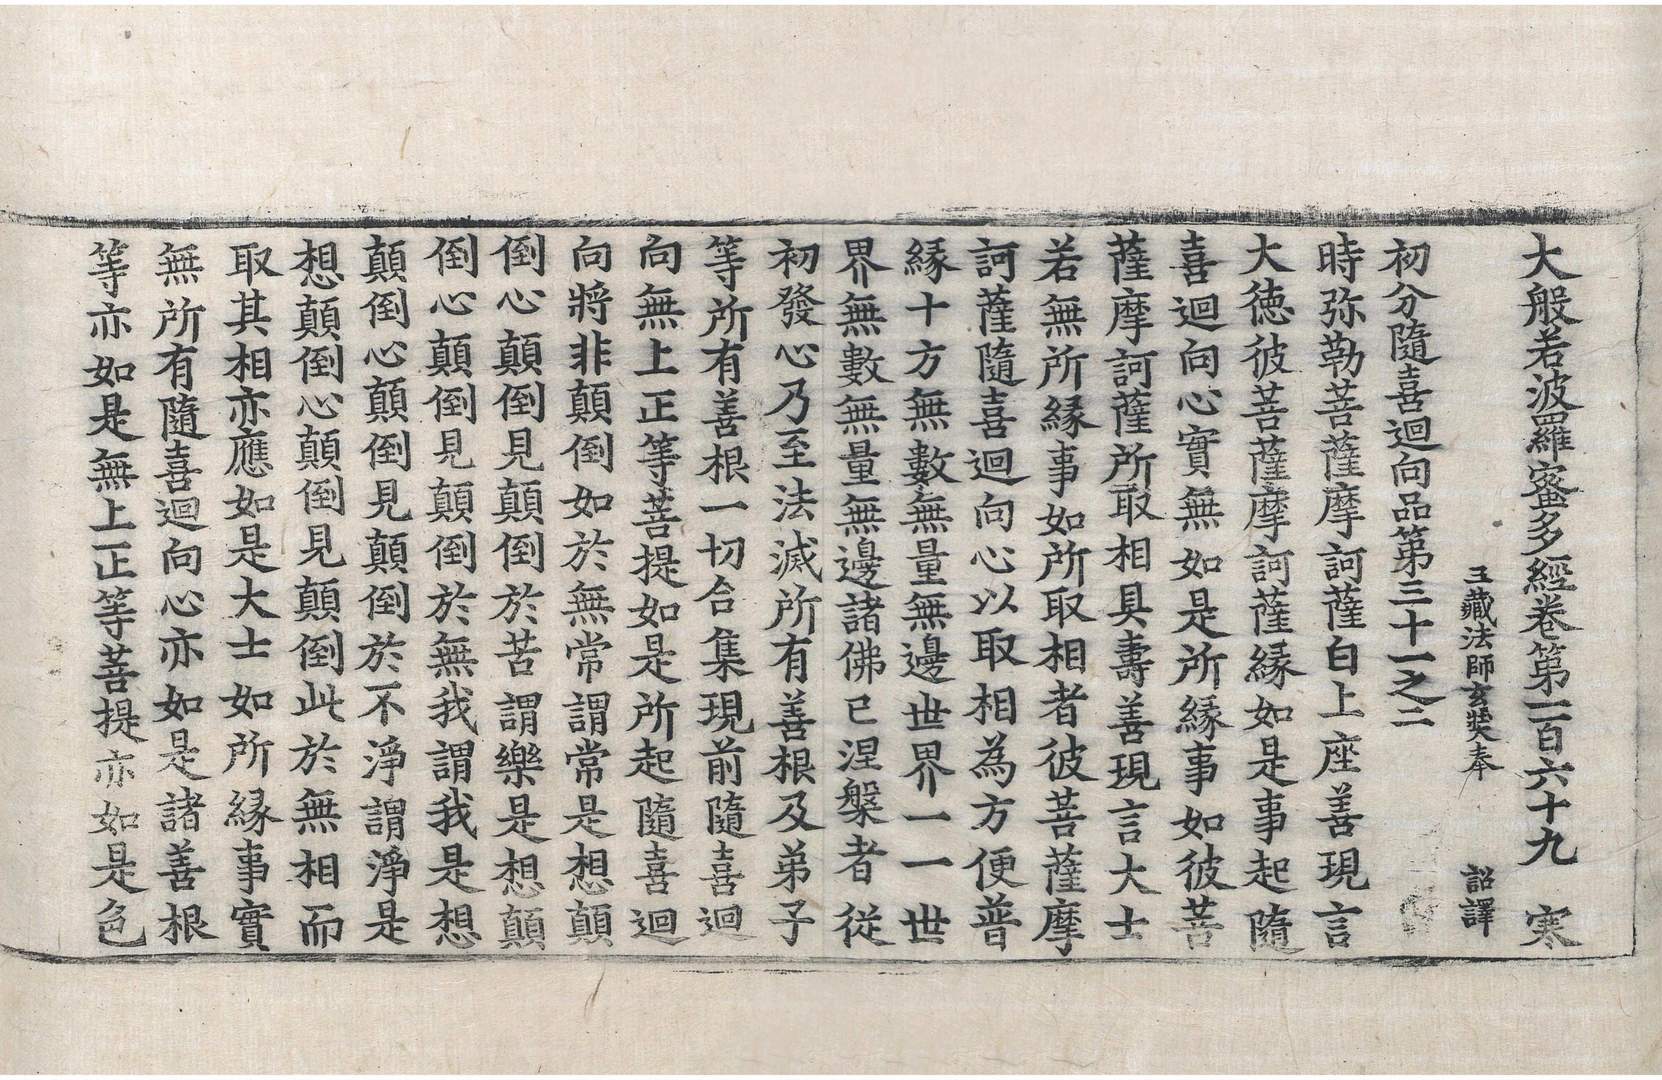 大般若波羅蜜多經卷第一百六十九　寒
三藏法師玄奘奉　詔譯
初分隨喜迴向品第三十一之二
時弥勒菩薩摩訶薩白上座善現言
大德彼菩薩摩訶薩緣如是事起隨
喜迴向心實無如是所緣事如彼菩
薩摩訶薩所取相具壽善現言大士
若無所緣事如所取相者彼菩薩摩
訶薩隨喜迴向心以取相為方便普
緣十方無數無量無邊世界一一世
界無數無量無邊諸佛已涅槃者從
初發心乃至法滅所有善根及弟子
等所有善根一切合集現前隨喜迴
向無上正等菩提如是所起隨喜迴
向將非顛倒如於無常謂常是想顛
倒心顛倒見顛倒於苦謂樂是想顛
倒心顛倒見顛倒於無我謂我是想
顛倒心顛倒見顛倒於不淨謂淨是
想顛倒心顛倒見顛倒此於無相而
取其相亦應如是大士如所緣事實
無所有隨喜迴向心亦如是諸善根
等亦如是無上正等菩提亦如是色